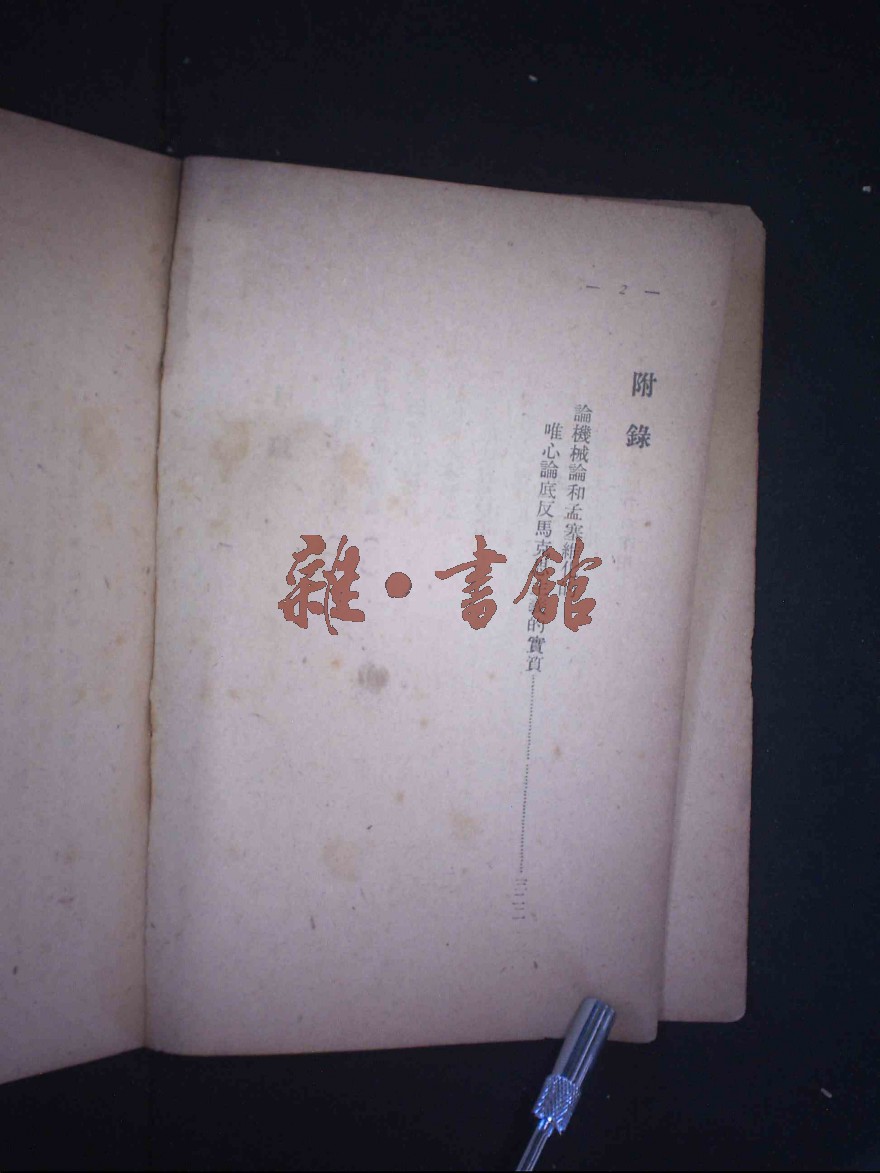 — 2 —
附錄
論機械論和孟塞維化的
唯心論底反馬克思主義的實質
雜·書館